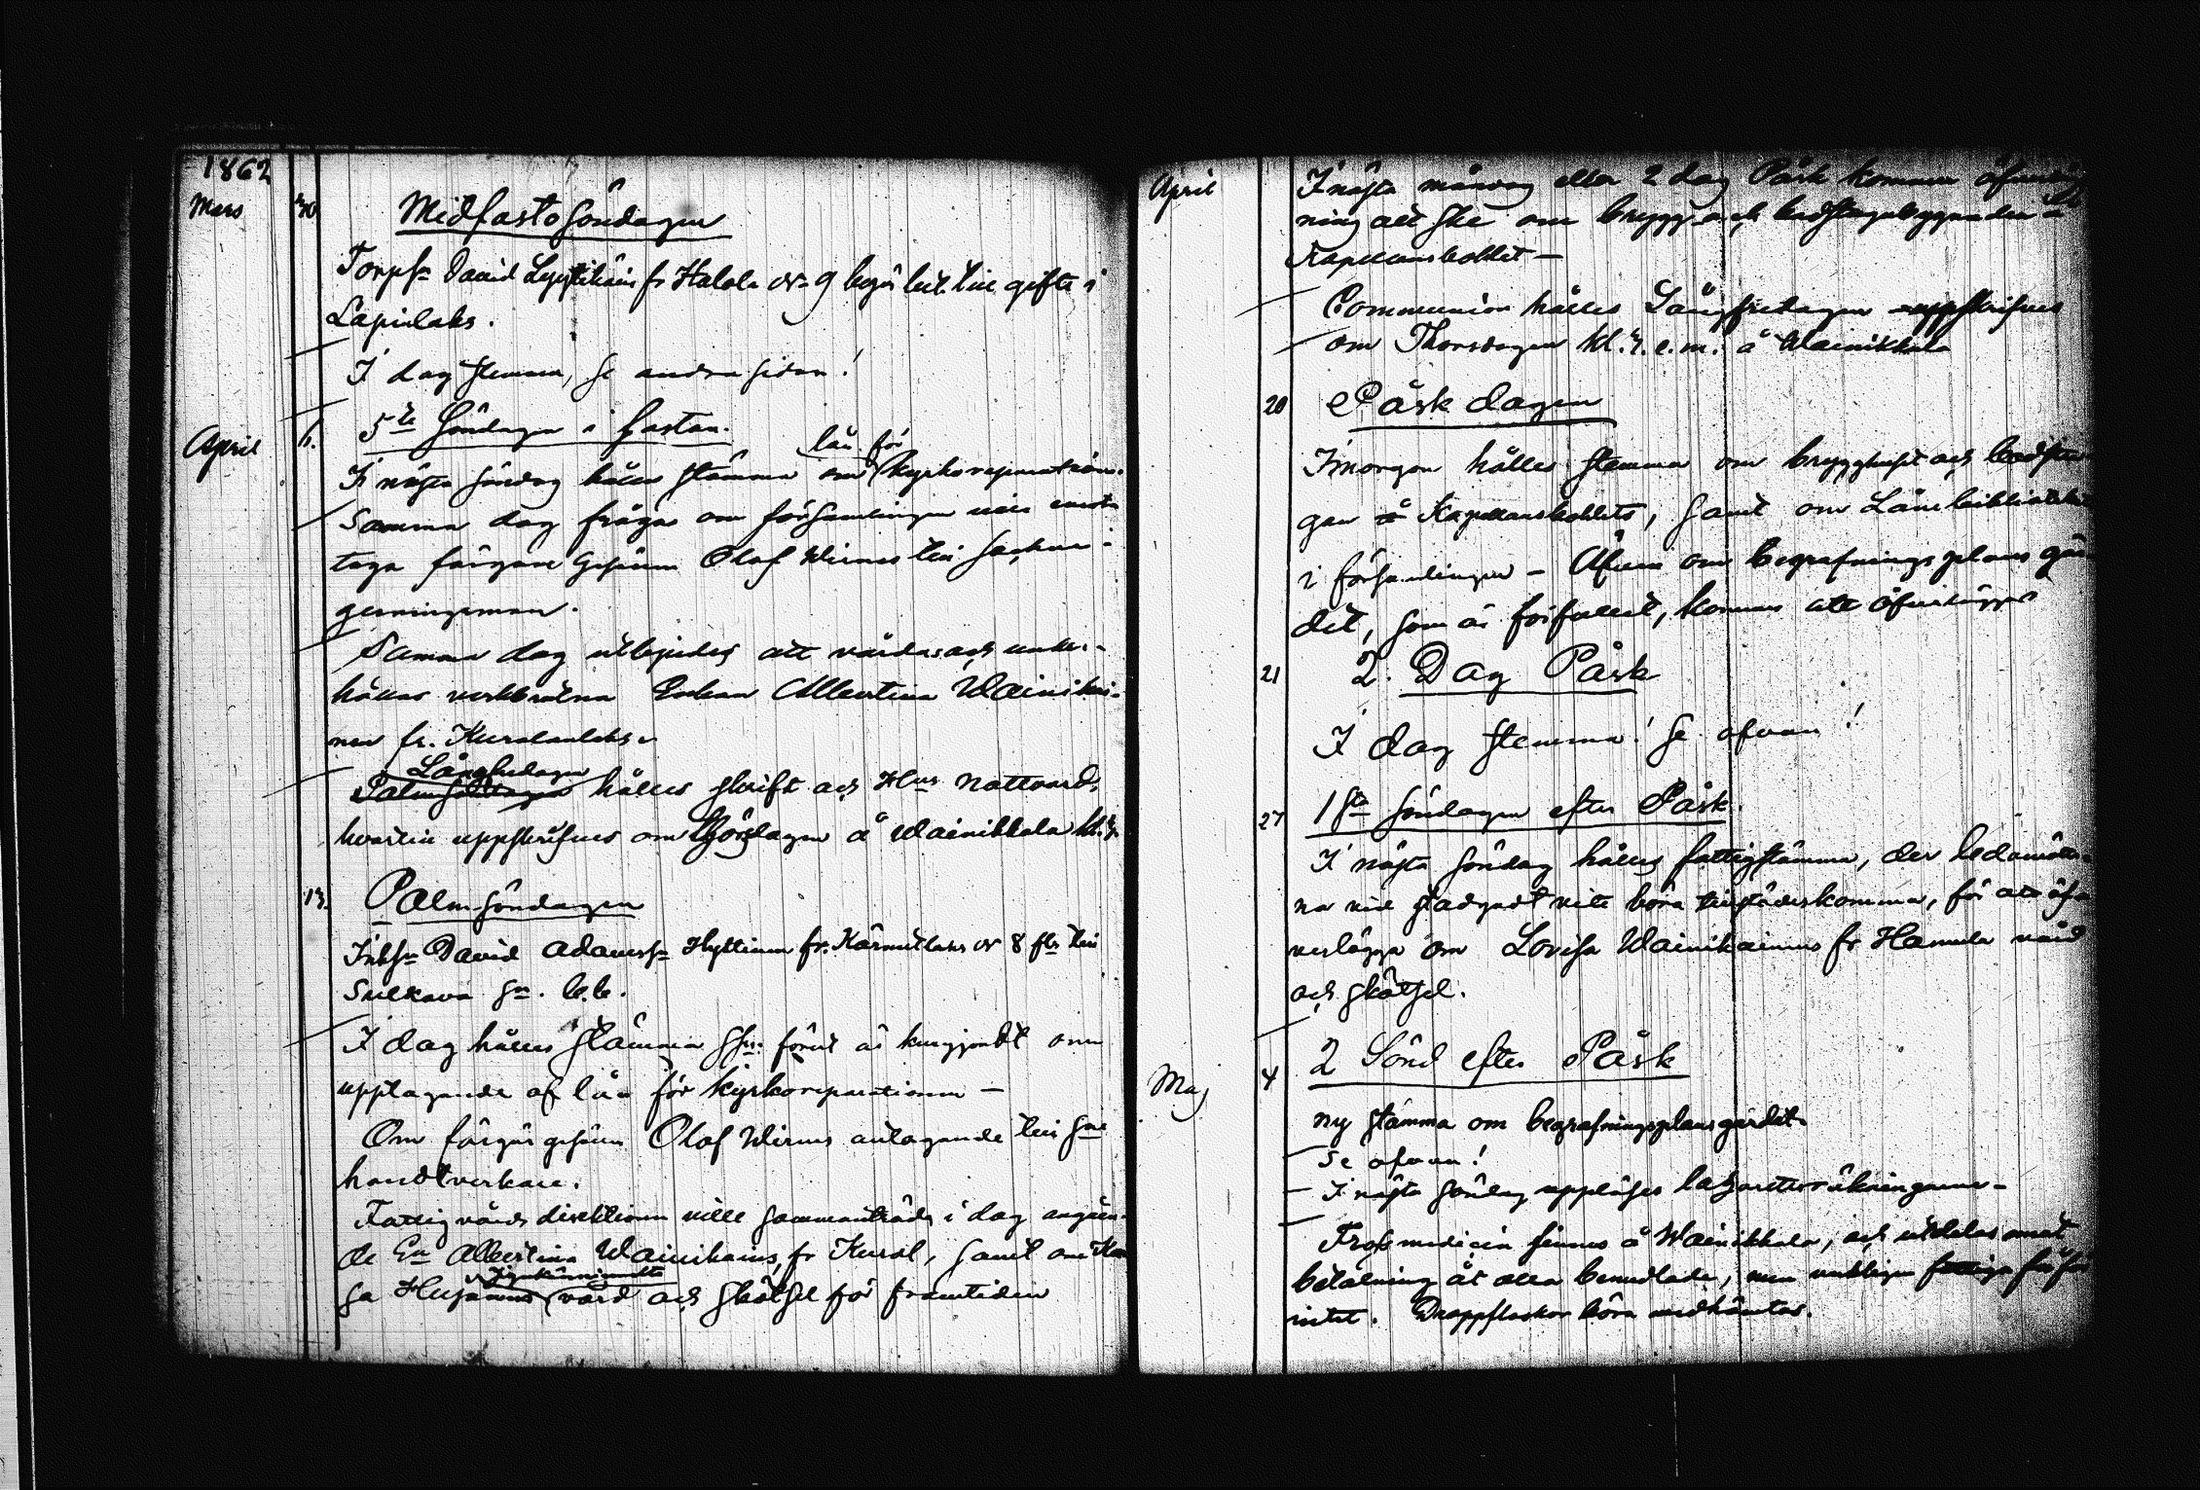 1862
Mars 30 Midfasto Söndagen
Torps. David Leppihäin fr Halola N. 9 begär lyst. till gifte i
Lapinlaks.
I dag stemma, se andra sidan!
April 6. 5te Söndagen i Fastan.
lån för
I nästa söndag hålles stämma om kyrkoreparation.
Samma dag frågas om församlingen vill emot-
taga färgare Gesällen Olof Wirms till Sockne-
gerningsman.
Samma dag utbjudes att vårdas och under-
hållas Enkan Albertina Wainikai-
nen fr.
Långfredagen
Palmsöndagen hålles skrift och Hns nattvard,
hvartill uppskrifves om Thorsdagen å Wainikkala kl. 4.
13. Palm-Söndagen
Inhs. David Adamss. Hyttinen fr. Kärmutlaks N 8 fls till
Sulkava
I dag hålles stämma förut är kungjordt om
upptagande af lån för kyrkoreparationen —
Om färgar gesällen Olof Wirms antagande till
handtverkare.
Fattigvårds direktionen ville sammanträda i dag angåen-
de En Albertina Wainikains, fr Kural, samt om
vård och skötsel för framtiden
April I nästa måndag eller 2 dag Påsk kommer
ning att ske om brygg- och badstugubyggnaden å
Kapellansbolet —
Communion hålles Långfredagen uppskrifves
om Thorsdagen kl. 4. e.m. å Wainikkala
20 Påsk dagen
I morgon hålles stemma om brygghuset och
gan å Kapellansbolets, samt om
i församlingen — Äfven om begrafningsplans
det, som är förfallet, kommer att öfverläggas
21 2. Dag Påsk
I dag stemma! Se ofvan!
27 1sta Söndagen efter Påsk.
I nästa söndag hålles fattigstämma, der ledamöter-
na vid stadgadt vite böra tillstädeskomma, för att öf-
verlägga om Lovisa Wainikainens fr Hamula vård
och skötsel.
Maj 4 2 Sönd efter Påsk
ny stämma om begrafningsplansgärdet.
Se ofvan!
I nästa söndag uppläses lazarettsräkningarne —
Frossmedicin finnes å Wainikkala, och utdelas emot
betalning åt alla bemedlade, men
intet. Droppflaskor böra medhämtas.